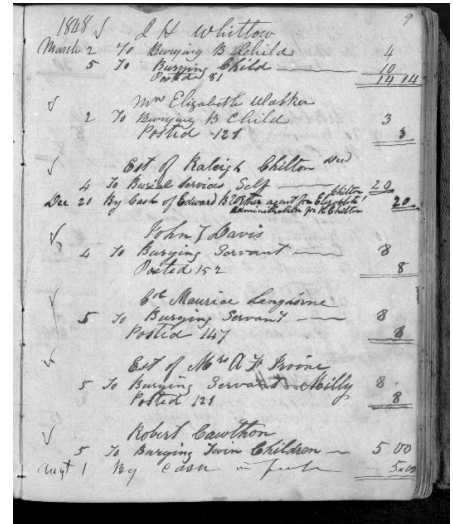 9
1848 √ J H Whittow
March 2 To Burying B Child 4
5 To Burying Child 10
Posted 81 14 14
√ Mrs Elizabeth Walker
2 To Burying B Child 3
Posted 121 3
√ Est of Raleigh Chilton Decd
4 To Burial Services Self 20
Chilton
Dec 20 By Cash of Edward agent for Elizabeth 20
administration for R Chilton
√ John J Davis
4 To Burying Servant 8
Posted 152 8
√ Maurice Langhorne
5 To Burying Servant 8
Posted 147 8
√ Est of Mrs A F Irvine
5 To Burying Servant Milly 8
Posted 121 8
√ Robert Cawthon
5 To Burying Twin Children 5 00
Augt 1 By Cash in full 5 00